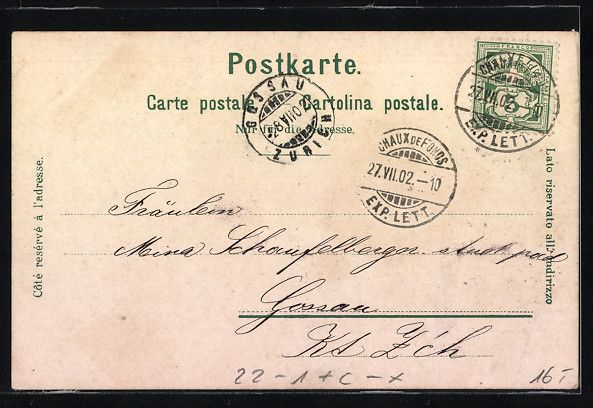 Postkarte.
Carte postale. Cartolina postale.
Nur für die Adresse.
Côté resérvé à l'adresse.
Lato riservato all'indirizzo
FRANCO
5
CHAUX DE FONDS
27.VII.02.–10
EXP. LETT.
GOSSAU
ZÜRICH
CHAUX DE FONDS
27.VII.02.–10
EXP. LETT.
Fräulein
Mina Schaufelberger
Gossau
Kt Z'ch
22-1+C-x
16.-